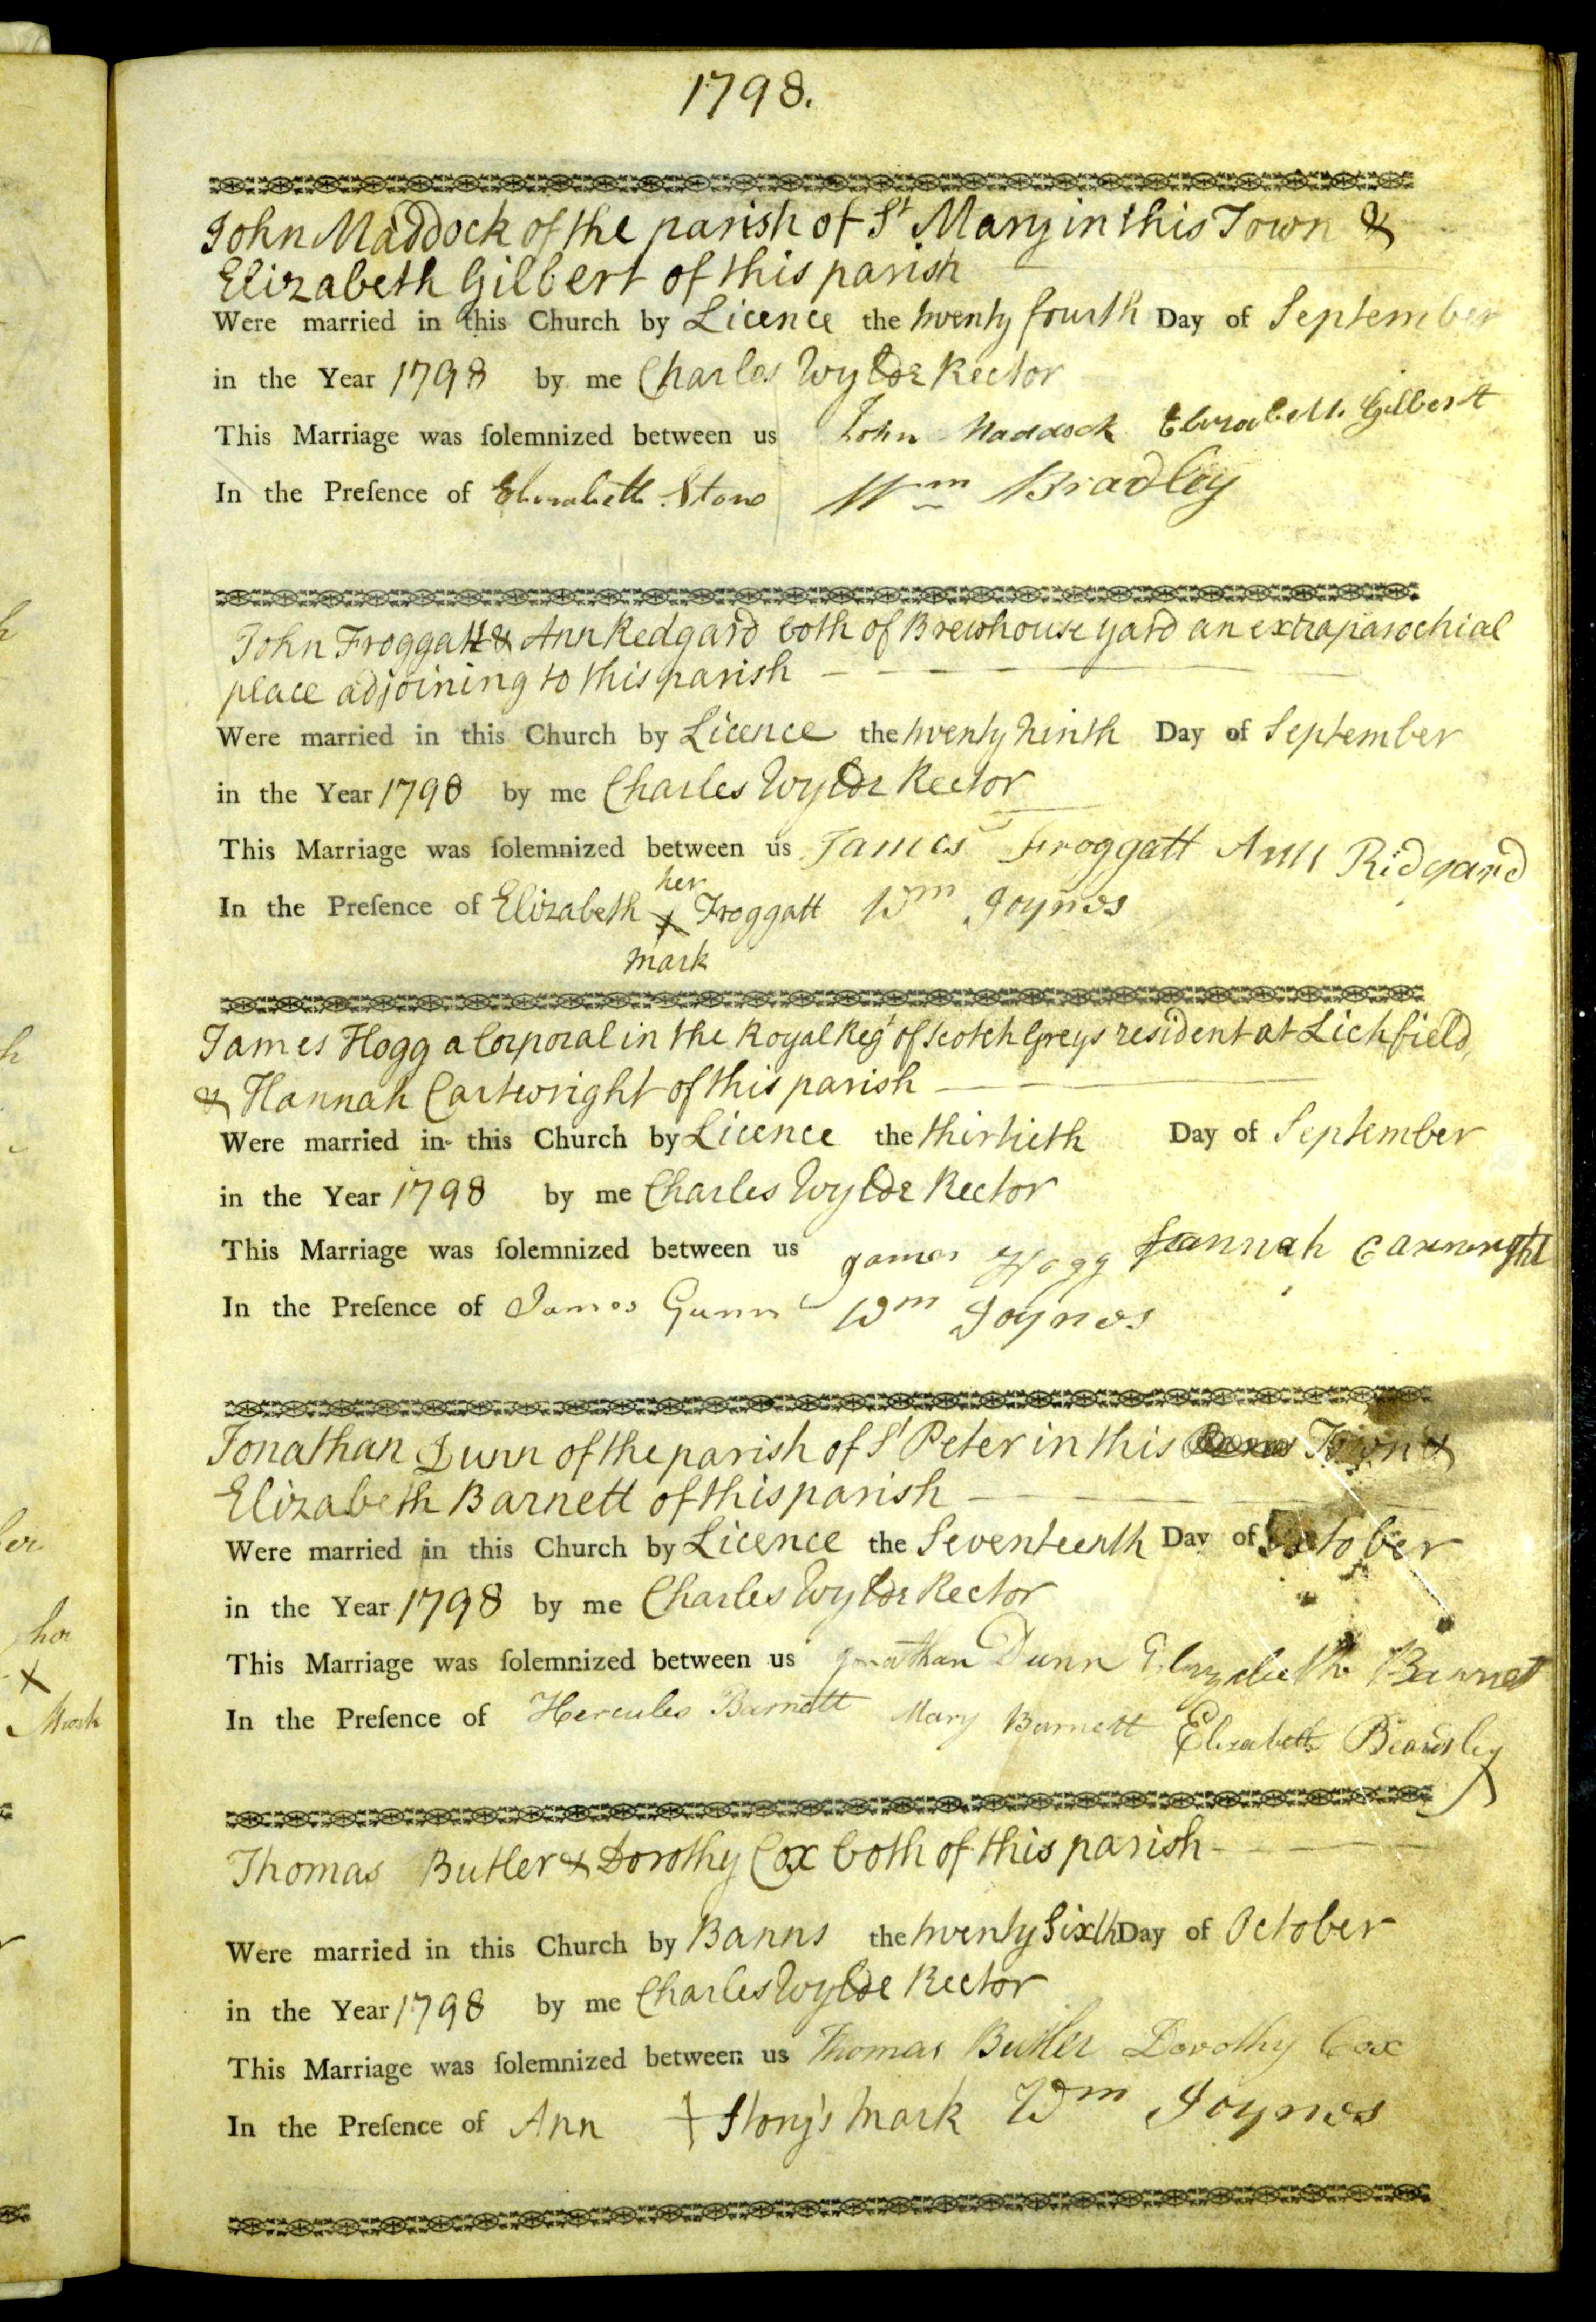 1798.
John Maddock of the parish of St Mary in this Town &
Elizabeth Gilbert of this parish
Were married in this Church by Licence the twenty fourth Day of September
in the Year 1798 by me Charles Wylde Rector
This Marriage was ſolemnized between us John Maddock Elizabeth Gilbert
In the Preſence of Elizabeth Stone Wm Bradley
John Froggatt & Ann Redgard both of Brewhouse yard an extraparochial
place adjoining to this parish
Were married in this Church by Licence the twenty ninth Day of September
in the Year 1798 by me Charles Wylde Rector
This Marriage was ſolemnized between us James Froggatt Ann Ridgard
her
In the Preſence of Elizabeth X Froggatt Wm Joynes
mark
James Hogg a Corporal in the Royal Regt of Scotch Greys resident at Lichfield,
& Hannah Cartwright of this parish
Were married in this Church by Licence the thirtieth Day of September
in the Year 1798 by me Charles Wylde Rector
This Marriage was ſolemnized between us James Hogg Hannah Cartwright
In the Preſence of James Gunn Wm Joynes
Jonathan Dunn of the parish of St Peter in this Town &
Elizabeth Barnett of this parish
Were married in this Church by Licence the Seventeenth Day of October
in the Year 1798 by me Charles Wylde Rector
This Marriage was ſolemnized between us Jonathan Dunn Elizabeth Barnet
In the Preſence of Hercules Barnett Mary Barnett Elizabeth Beardsley
Thomas Butler & Dorothy Cox both of this parish
Were married in this Church by Banns the twenty Sixth Day of October
in the Year 1798 by me Charles Wylde Rector
This Marriage was ſolemnized between us Thomas Butler Dorothy Cox
In the Preſence of Ann + Story's Mark Wm Joynes
her
X
Mark